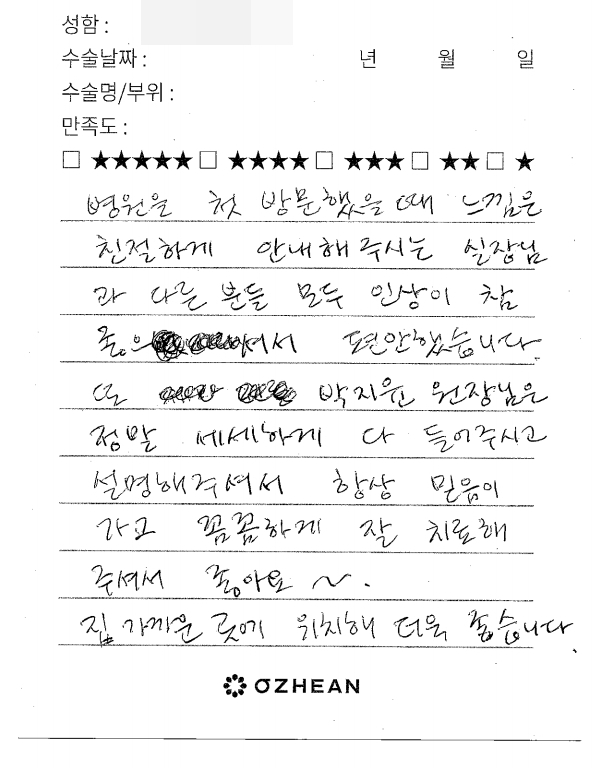 성함 :
수술날짜 : 년 월 일
수술명/부위 :
만족도 :
□ ★★★★★ □ ★★★★ □ ★★★ □ ★★ □ ★
병원을 첫 방문했을 때 느낌은
친절하게 안내해주시는 실장님
과 다른 분들 모두 인상이 참
좋으셔서 편안했습니다.
또 박지윤 원장님은
정말 세세하게 다 들어주시고
설명해주셔서 항상 믿음이
가고 꼼꼼하게 잘 치료해
주셔서 좋아요 ~.
집 가까운 곳에 위치해 더욱 좋습니다.
OZHEAN